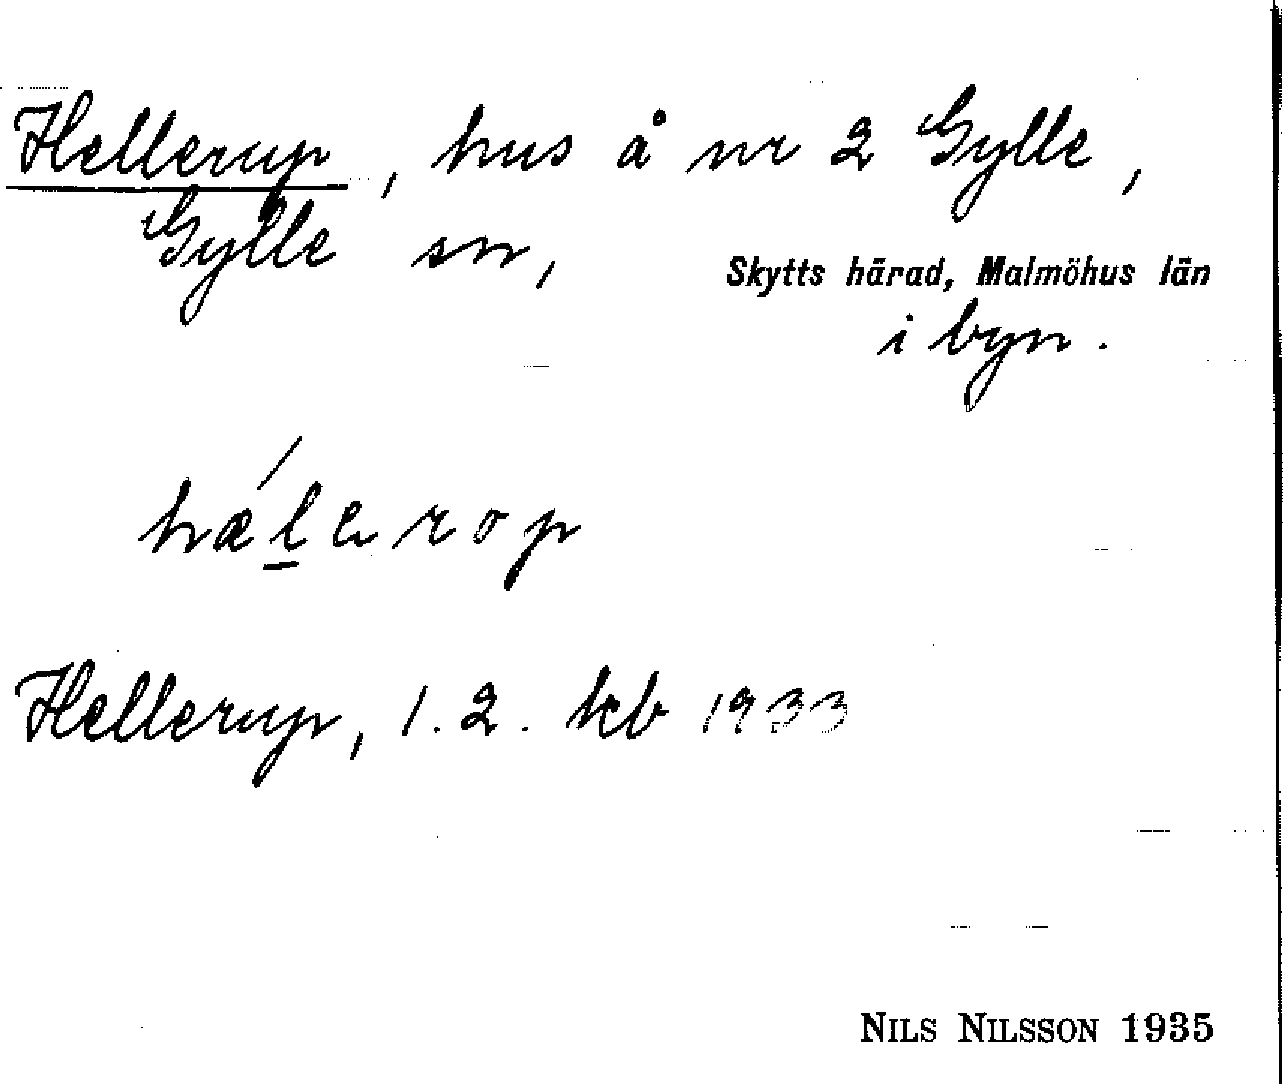 Hellerup, hus å nr 2 Gylle,
Gylle sn, Skytts härad, Malmöhus län
i byn.
hǽl̲erop
Hellerup, 1.2. kb 1933
NILS NILSSON 1935